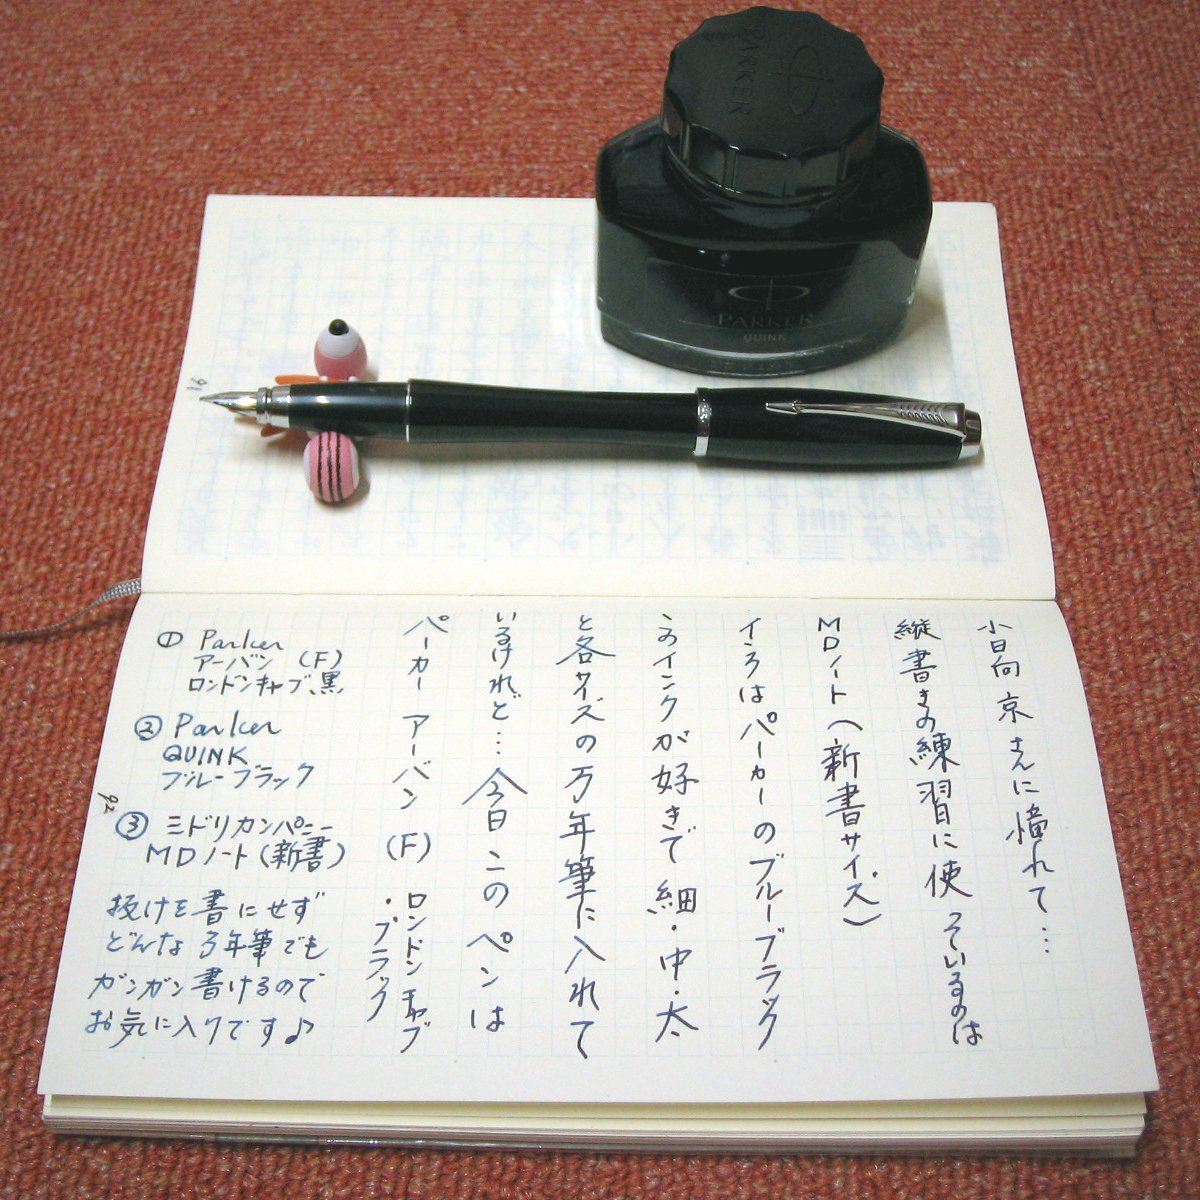 PARKER
PARKER
QUINK
91
小日向 京 さんに憧れて…
縦書きの練習に使っているのは
MDノート(新書サイズ)
インクはパーカーのブルーブラック
このインクが好きで細・中・太
と各サイズの万年筆に入れて
いるけれど…今日このペンは
パーカー アーバン (F) ロンドンキャブ
・ブラック
① Parker
アーバン (F)
ロンドンキャブ黒
② Parker
QUINK
ブルーブラック
③ ミドリカンパニー
MDノート(新書)
抜けを書にせず
どんな万年筆でも
ガンガン書けるので
お気に入りです♪
92